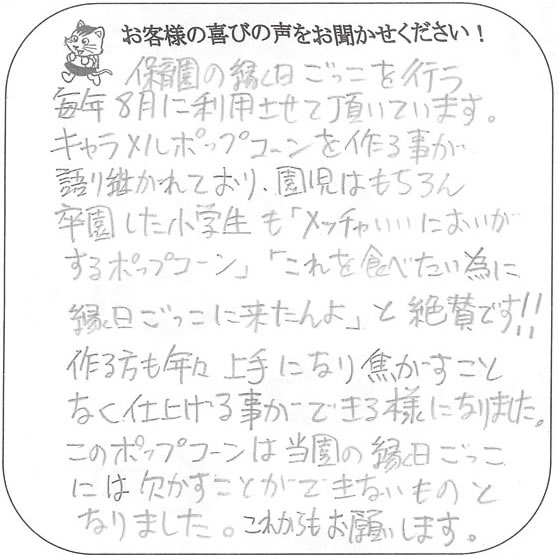 お客様の喜びの声をお聞かせください!
保育園の縁日ごっこを行う
毎年8月に利用させて頂いています。
キャラメルポップコーンを作る事が
語り継がれており、園児はもちろん
卒園した小学生も「メッチャいいにおいが
するポップコーン」「これを食べたい為に
縁日ごっこに来たんよ」と絶賛です!!
作る方も年々上手になり焦がすこと
なく仕上げる事ができる様になりました。
このポップコーンは当園の縁日ごっこ
には欠かすことができないものと
なりました。これからもお願いします。